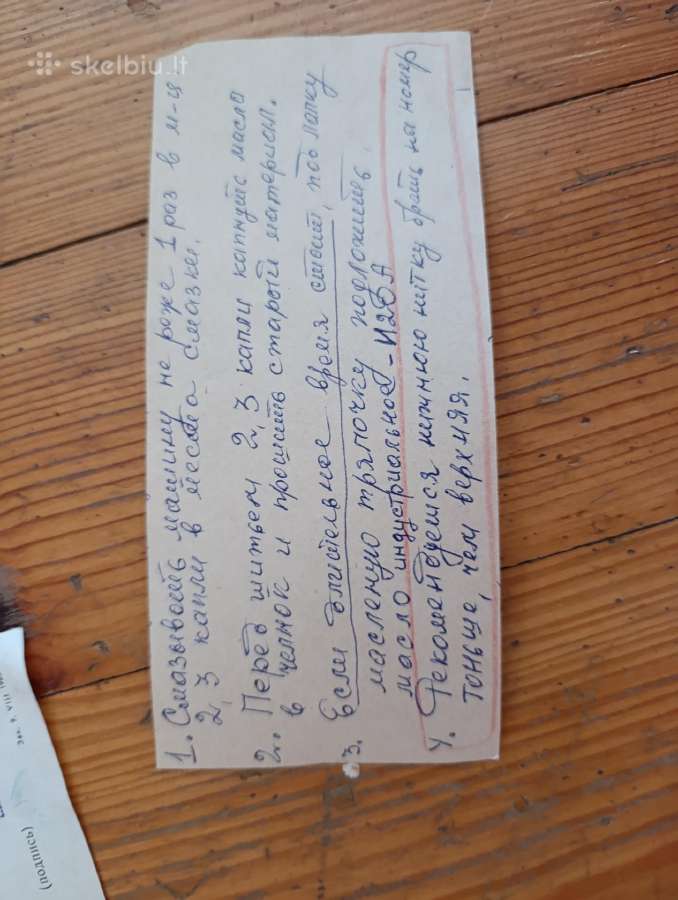 skelbiu.lt
1. Смазывать машину не реже 1 раз в м-ц
2, 3 капли в места смазки.
2. Перед шитьем 2, 3 капли капнуть масла
в челнок и прошить старый материал.
3. Если длительное время стоит, под лапку
масленую тряпочку подложить.
масло индустриальное - И20А
4. Рекомендуется нижнюю нитку брать на номер
тоньше, чем верхняя.
(подпись)